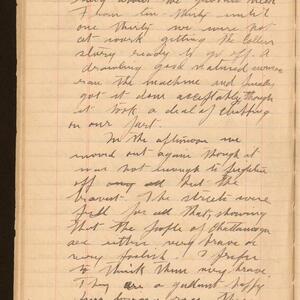 from ten-thirty until
one thirty we were
at work getting the
ready to go. A
drawling good natured woman
ran the machine and finally
got it done acceptably though
it took a deal of
on our part.
In the afternoon we
moved out again though it
was hot enough to frighten
off any all but the
bravest. The streets were
full for all that, showing
that the people of Chattanooga
are either very brave or
very foolish. I prefer
to think them very brave.
They are a gallant happy